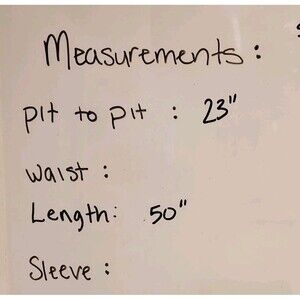 Measurements :
pit to pit : 23"
Waist :
Length: 50"
Sleeve :